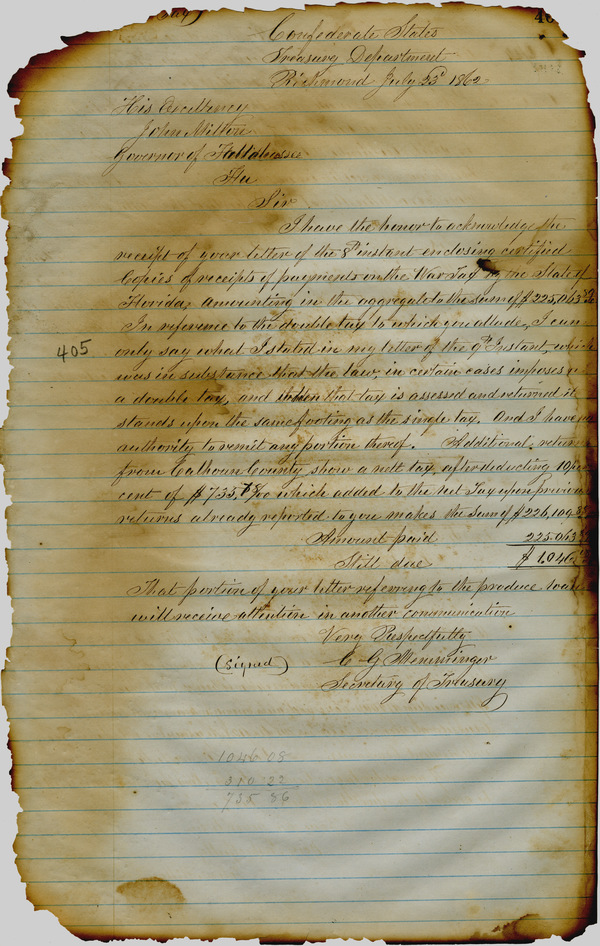 40
Confederate States
Treasury Department
Richmond July 23d 1862
His Excellency
John Milton
Governor of Tallahassee
Fla
Sir
I have the honor to acknowledge the
receipt of your letter of the 8th instant enclosing certified
Copies of receipts of payments on the War Tax by the State of
Florida, amounting in the aggregate to the sum of $225,063
In reference to the double tax to which you allude, I can
only say what I stated in my letter of the 9th Instant, which
405
was in substance that the law, in certain cases imposes
a double tax, and when that tax is assessed and returned it
stands upon the same footing as the single tax, And I have no
authority to remit any portion thereof. Additional returns
from Calhoun County show a nett tax, after deducting 10 per
cent of $735, which added to the net Tax upon previous
returns already reported to you makes the sum of $226,109
Amount paid 225.063
Still due $1,046
That portion of your letter referring to the produce loan
will receive attention in another communication
Very Respectfully
(signed) C G Memminger
Secretary of Treasury
1046 08
310 22
735 86